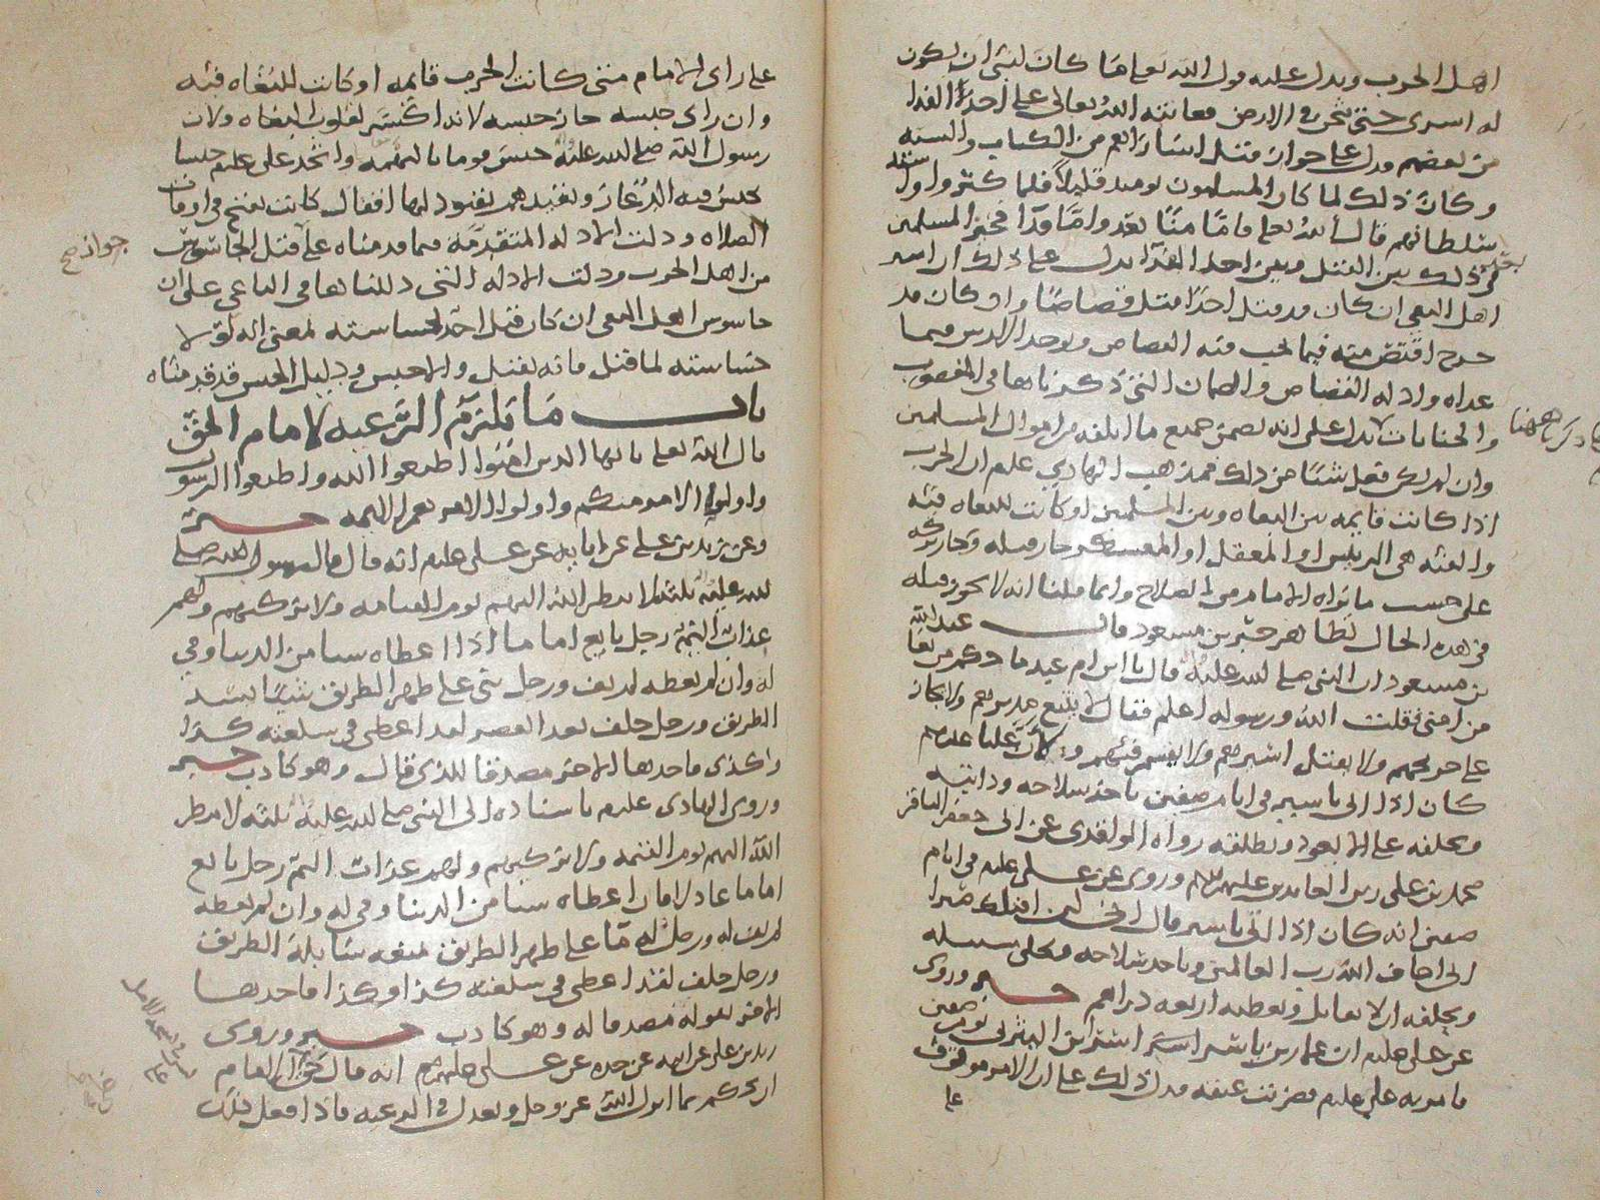 اهل الحرب ويدل عليه قول الله تعالى ما كان لنبي ان يكون
له اسرى حتى يثخن في الارض فعاتبه الله تعالى على اخذ الفدا
من بعضهم فدل على جواز قتل اسارائهم من الكتاب والسنه
وكان ذلك لما كان المسلمون يومئذ قليلا فلما كثروا واشتد
سلطانهم قال الله تعالى فاما منا بعد واما فدا فخير المسلمين
في ذلك بين القتل وبين اخذ الفدا يدل على ذلك ان اسير
اهل البغي ان كان قد قتل احدا قتل قصاصا وان كان قد
جرح اقتص منه فيما يجب فيه القصاص ويوخذ الارش فيما
عداه وادله القصاص والضمان التي ذكرناها في الغصوب
والجنايات تدل على انه يضمن جميع ما اتلفه من اموال المسلمين
وان لم يكن فعل شيئا من ذلك فمذهب الهادي علم ان الحرب
اذا كانت قايمه بين البغاه وبين المسلمين او كانت للبغاه فئه
والفئه هي الرييس او المعقل او المعسكر جاز قتله وجاز تركه
على حسب ما يراه الامام من الصلاح وانما قلنا انه لا يجوز قتله
في هذه الحال لظاهر خبر بن مسعود قال عبد الله
بن مسعود ان النبي صلى الله عليه قال يا ابن ام عبد ما حكم من بغا
من امتي فقلت الله ورسوله اعلم فقال لا يتبع مدبرهم ولا يجاز
على جريحهم ولا يقتل اسيرهم ولا يقسم فيئهم ولان عليا عليلم
كان اذا اتي باسير في ايام صفين ياخذ سلاحه ودابته
ويحلفه على الا يعود ويطلقه رواه الواقدي عن ابي جعفر الباقر
محمد بن علي زين العابدين عليهم السلم وروي عن علي عليلم في ايام
صفين انه كان اذا اتي باسير قال اني لن اقتلك صبرا
اني اخاف الله رب العالمين وياخذ سلاحه ويخلي سبيله
ويحلفه ان لا يقاتل ويعطيه اربعه دراهم خبر وروي
عن علي عليلم ان عمار بن ياسر اسر اسيرا من اليثربي يوم صفين
فامر به علي عليلم فضربت عنقه فدل ذلك على ان الامر موقوف
على
ذكره ههنا
على راي الامام متى كانت الحرب قايمه او كانت للبغاه فئه
وان راى حبسه جاز حبسه لانه اكسر لقلوب البغاه ولان
رسول الله صلى الله عليه حبس قوما بالتهمه واتخذ علي عليلم حبسا
حبس فيه الدعار وبقيدهم بقيود لها اقفال كانت تفتح في اوقات
الصلاه ودلت الادله المتقدمه فيما قدمناه على قتل الجاسوس
من اهل الحرب ودلت الادله التي دللنا بها في الباغي على ان
جاسوس اهل البغي ان كان قتل احد بجساسته بمعنى انه لولا
جساسته لما قتل فانه يقتل والا حبس ودليل الحبس قد قدمناه
باب ما يلزم الرعيه لامام الحق
قال الله تعالى يا ايها الذين امنوا اطيعوا الله واطيعوا الرسول
واولي الامر منكم واولوا الامر هم الايمه خبر
وعن زيد بن علي عن ابايه عن علي عليلم انه قال قال رسول الله صلى
الله عليه ثلثه لا ينظر الله اليهم يوم القيامه ولا يزكيهم ولهم
عذاب اليم رجل بايع اماما اذا اعطاه شيا من الدنيا وفي
له وان لم يعطه لم يف ورجل بنى على ظهر الطريق شيا يسد
الطريق ورجل حلف بعد العصر لقد اعطي في سلعته كذا
وكذى فاخذها الاخر مصدقا للذي قال وهو كاذب خبر
وروى الهادي عليلم باسناده الى النبي صلى الله عليه ثلثه لا ينظر
الله اليهم يوم القيمه ولا يزكيهم ولهم عذاب اليم رجل بايع
اماما عادلا فان اعطاه شيا من الدنيا وفي له وان لم يعطه
لم يف له ورجل له ما على ظهر الطريق يمنعه سابلة الطريق
ورجل حلف لقد اعطي في سلعته كذا وكذا فاخذها
الاخر بقوله مصدقا له وهو كاذب خبر وروى
زيد بن علي عن ابيه عن جده عن علي عليهم انه قال حق على الامام
ان يحكم بما انزل الله عز وجل ويعدل في الرعيه فاذا فعل ذلك
جواز صح